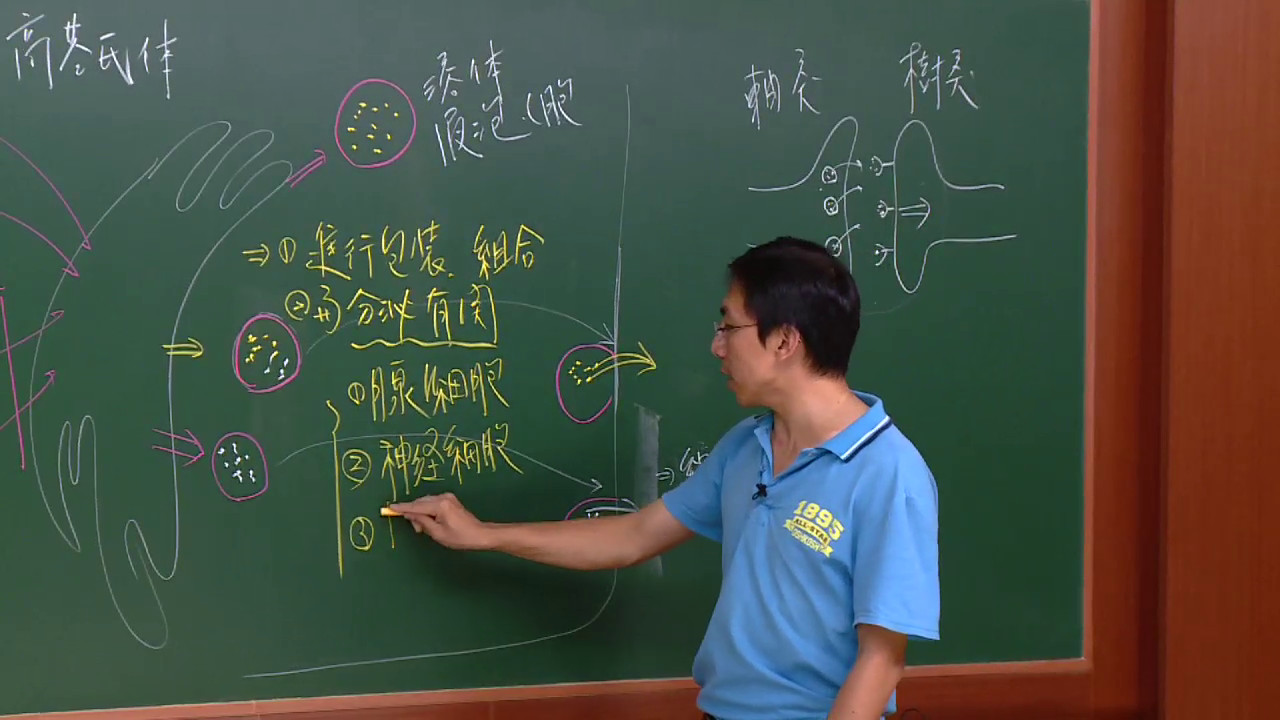 高基氏体
溶体
液泡(胞
軸突
樹突
⇒①進行包装、組合
②与分泌有関
①腺細胞
②神経細胞
③
1895
ALL-STAR